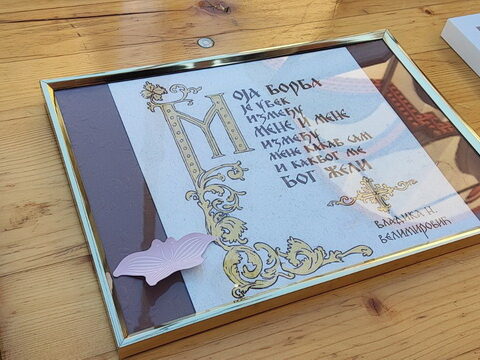 Моја борба
је увек
између
мене и мене
између
мене какав сам
и каквог ме
Бог жели
Владика Н.
Велимировић